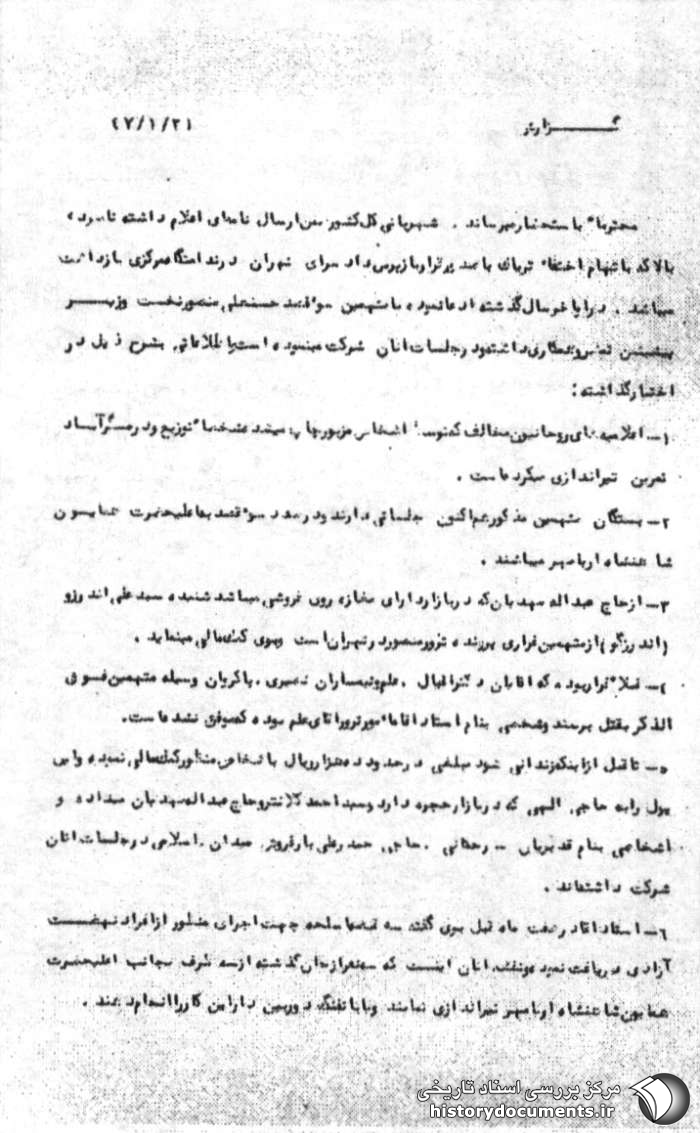 گزارش ۴۷/۱/۲۱
محترما باستحضار میرساند . شهربانی کل کشور ضمن ارسال نامه‌ای اعلام داشته نامبرده
بالا که باتهام اختفاء تریاک با صدور قرار بازپرس دادسرای تهران در ندامتگاه مرکزی بازداشت
میباشد . در اواخر سال گذشته ادعا نموده با متهمین سوء قصد حسنعلی منصور نخست وزیر
پیشین تماس و همکاری داشته و در جلسات آنان شرکت مینموده است و اطلاعاتی بشرح ذیل در
اختیار گذاشته :
۱ـ اعلامیه‌های روحانیون مخالف که توسط اشخاص مزبور چاپ میشد شخصا توزیع و در مسگرآباد
تمرین تیراندازی میکرده است .
۲ـ بستگان متهمین مذکور هم اکنون جلساتی دارند و درصدد سوء قصد به اعلیحضرت همایون
شاهنشاه آریامهر میباشند .
۳ـ از حاج عبداله مهدیان که در بازار دارای مغازه فروشی میباشد شنیده سید علی اندرزو
(اندرزگو) از متهمین فراری پرونده ترور منصور در تهران است و بوی کمک مالی مینماید .
۴ـ قبلا قرار بوده که آقایان دکتر اقبال . علم و تیمساران نصیری . پاکروان وسیله متهمین فوق
الذکر بقتل برسند و شخصی بنام استاد آقا مامور ترور آقای علم بوده که موفق نشده است.
۵ـ تا قبل از اینکه زندانی شود مبلغی در حدود ده هزار ریال باشخاص منظور کمک مالی نموده و این
پول را به حاجی الهی که در بازار حجره دارد و سید احمد کلانتر و حاج عبداله مهدیان میداده و
اشخاصی بنام قدیریان ــ رحمانی . حاجی حیدرعلی بارفروش میدان . اسلامی در جلسات آنان
شرکت داشته‌اند .
۶ـ استاد آقا در هفت ماه قبل بوی گفته سه قبضه اسلحه جهت اجرای منظور از افراد نهضت
آزادی دریافت نموده و نقشه آنان اینست که سه نفر از میان گذشته از سه طرف بجانب اعلیحضرت
همایون شاهنشاه آریامهر تیراندازی نمایند و یا با تفنگ دوربین دار این کار را انجام دهند .
مرکز بررسی اسناد تاریخی
historydocuments.ir